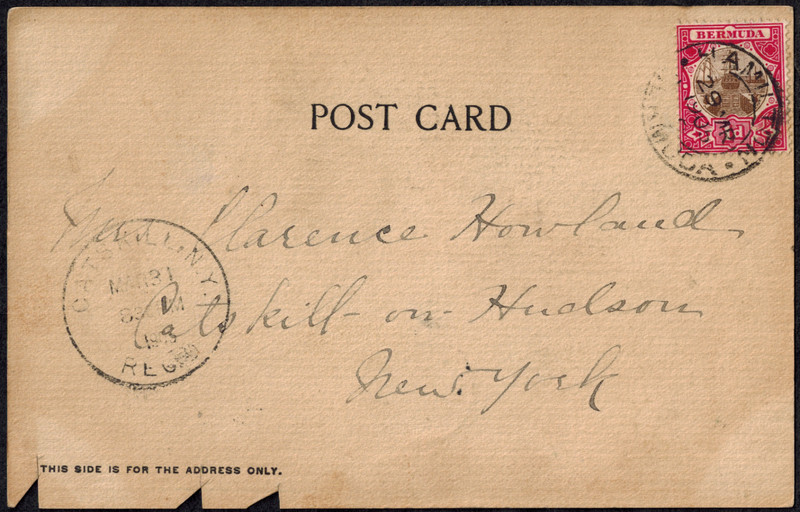 BERMUDA
1d
HAMILTON
29
BERMUDA
POST CARD
Clarence Howland
Catskill-on-Hudson
New York
CATSKILL, N.Y.
MAR 31
REC'D
THIS SIDE IS FOR THE ADDRESS ONLY.